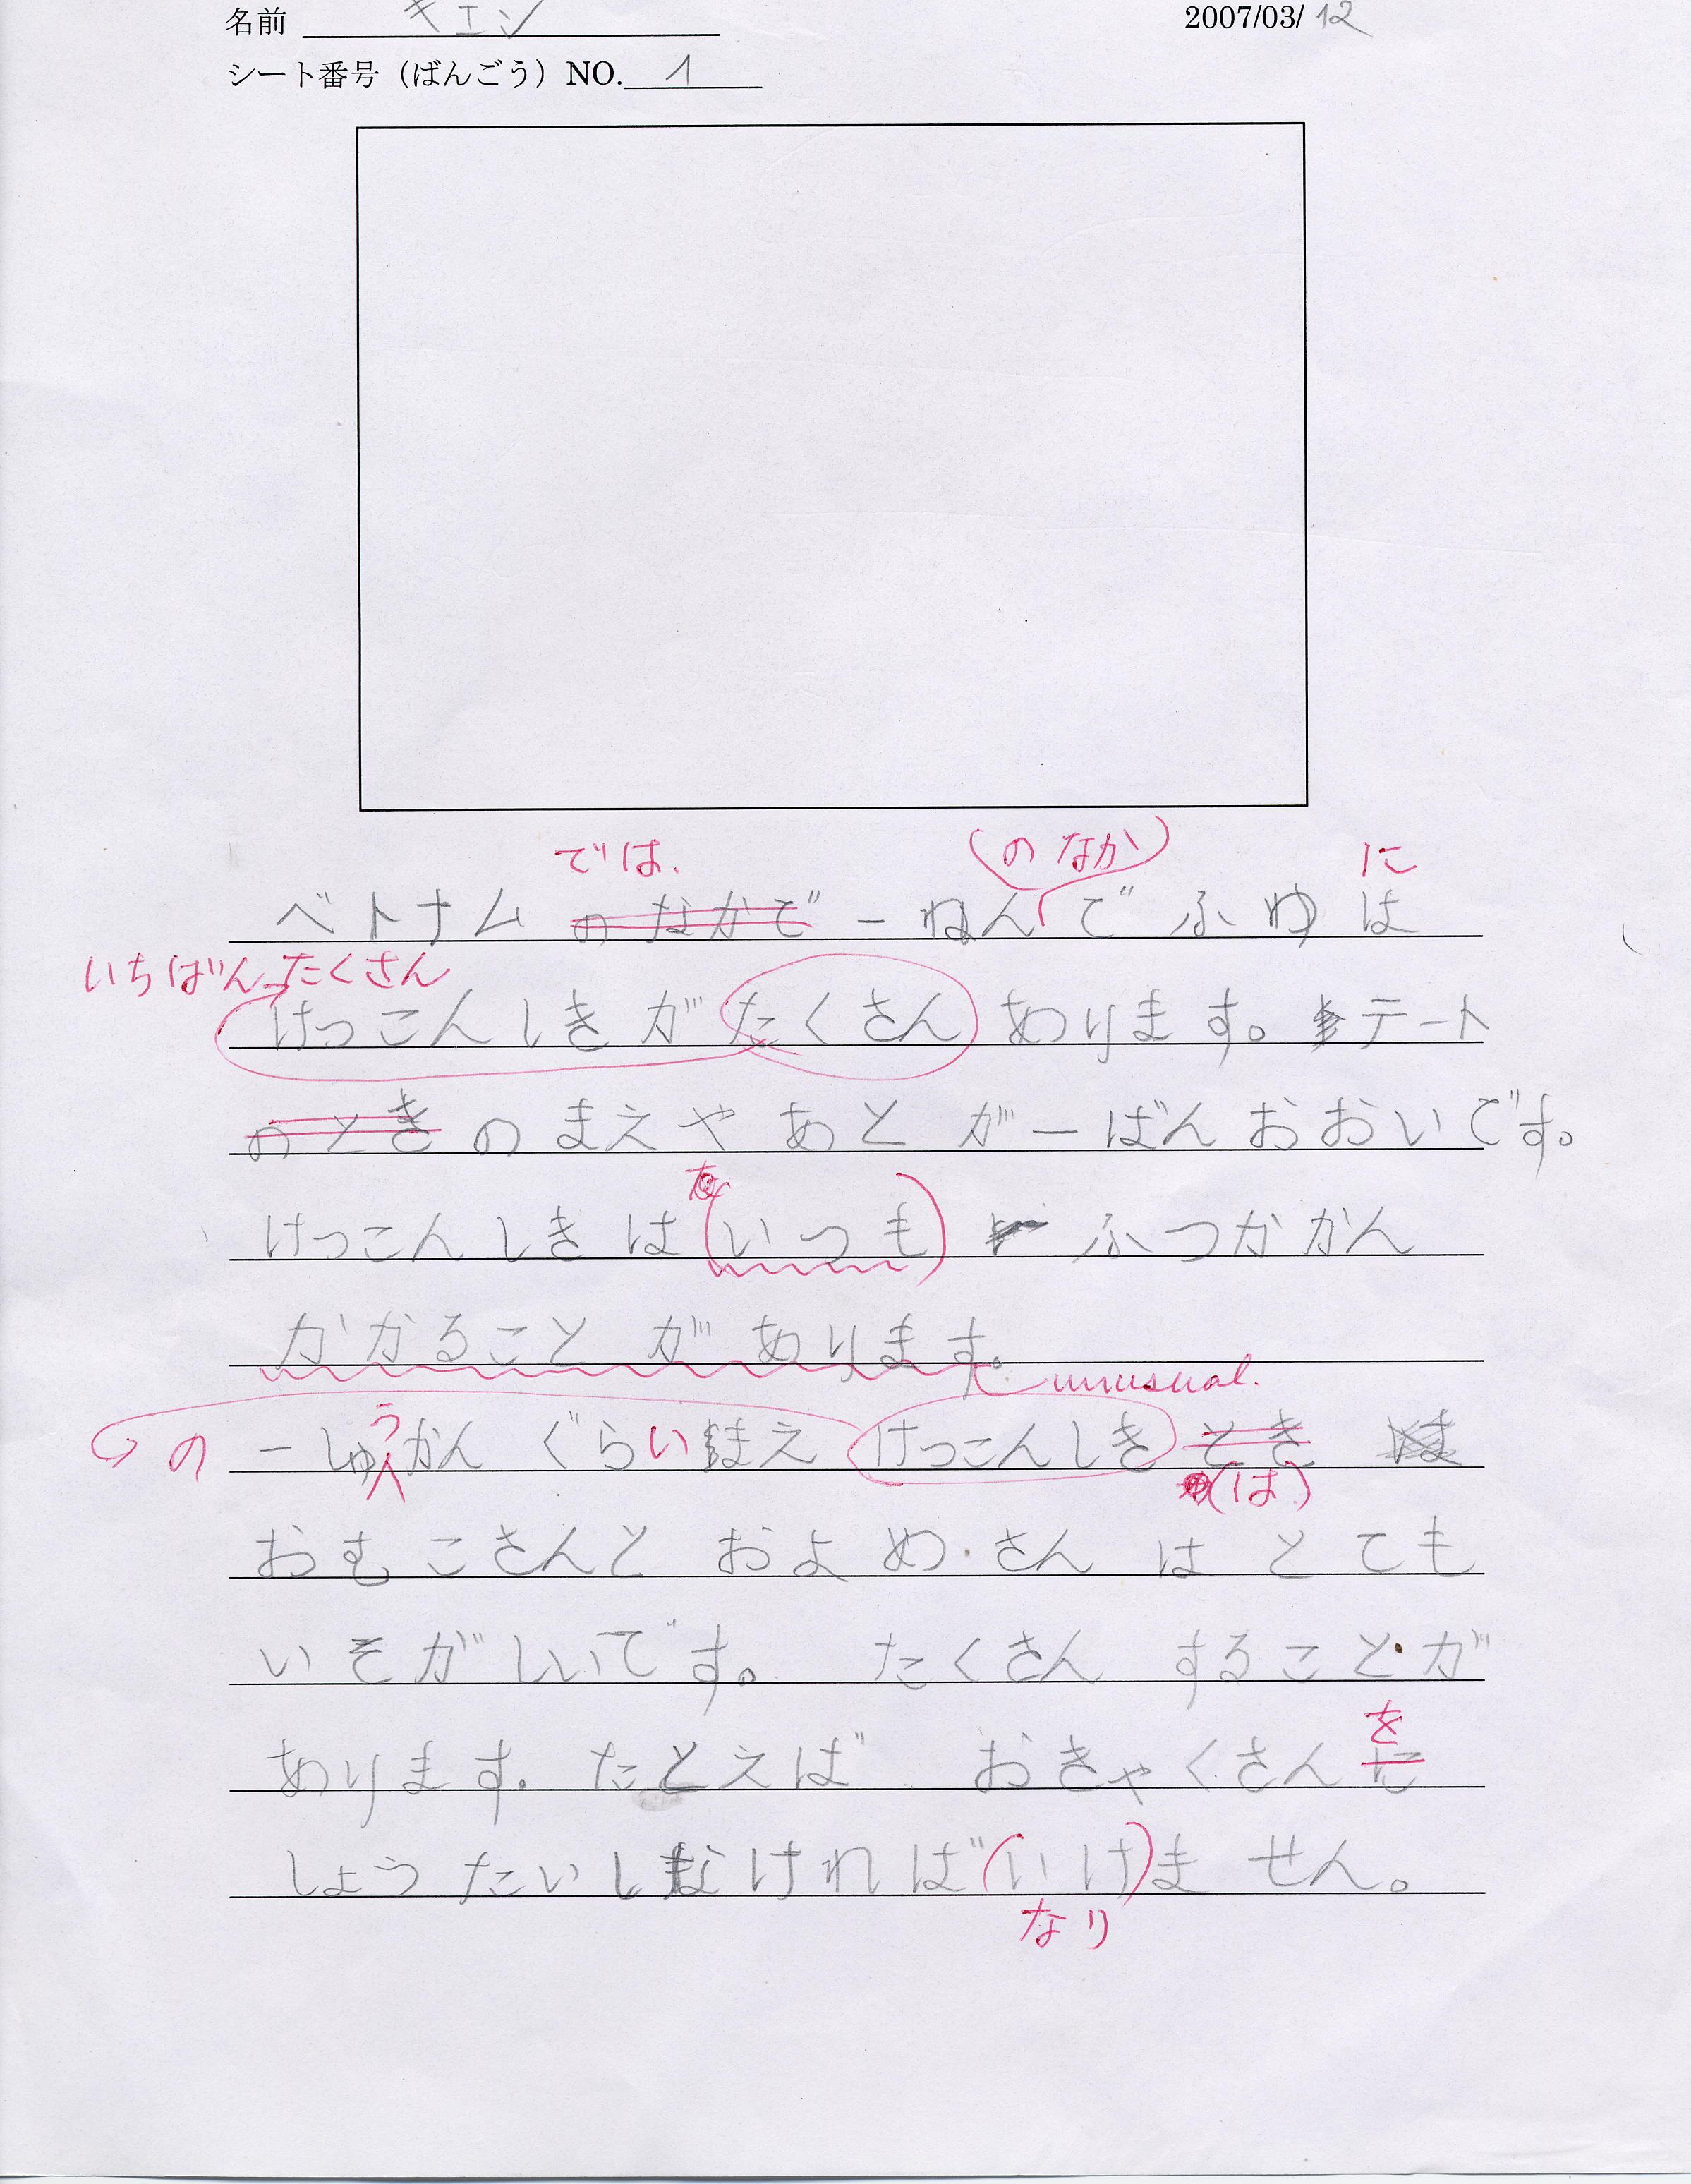 名前 キエン 2007/03/12
シート番号（ばんごう）NO. 1
では. (のなか) に
ベトナム のなかで 一ねん で ふゆ は
いちばん たくさん
けっこんしき が たくさん あります。 テート
のとき の まえ や あと が 一ばん おおい です。
けっこんしき は (いつも) ふつかかん
かかること が あります。
unusual.
の 一しゅうかん ぐらい まえ けっこんしき とき
(は)
おむこさんと およめさん は とても
いそがしいです。 たくさん することが
を
あります。 たとえば おきゃくさん に
しょうたいしなければ(いけ)ません。
なり